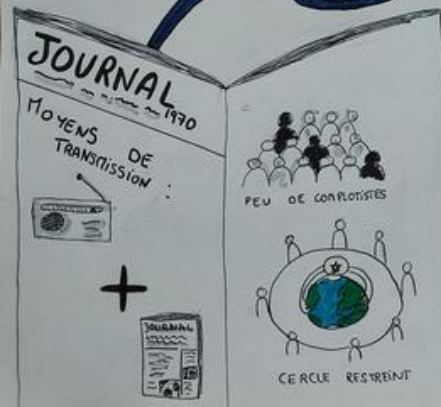 JOURNAL
1970
MOYENS DE
TRANSMISSION :
JOURNAL
PEU DE COMPLOTISTES
CERCLE RESTREINT